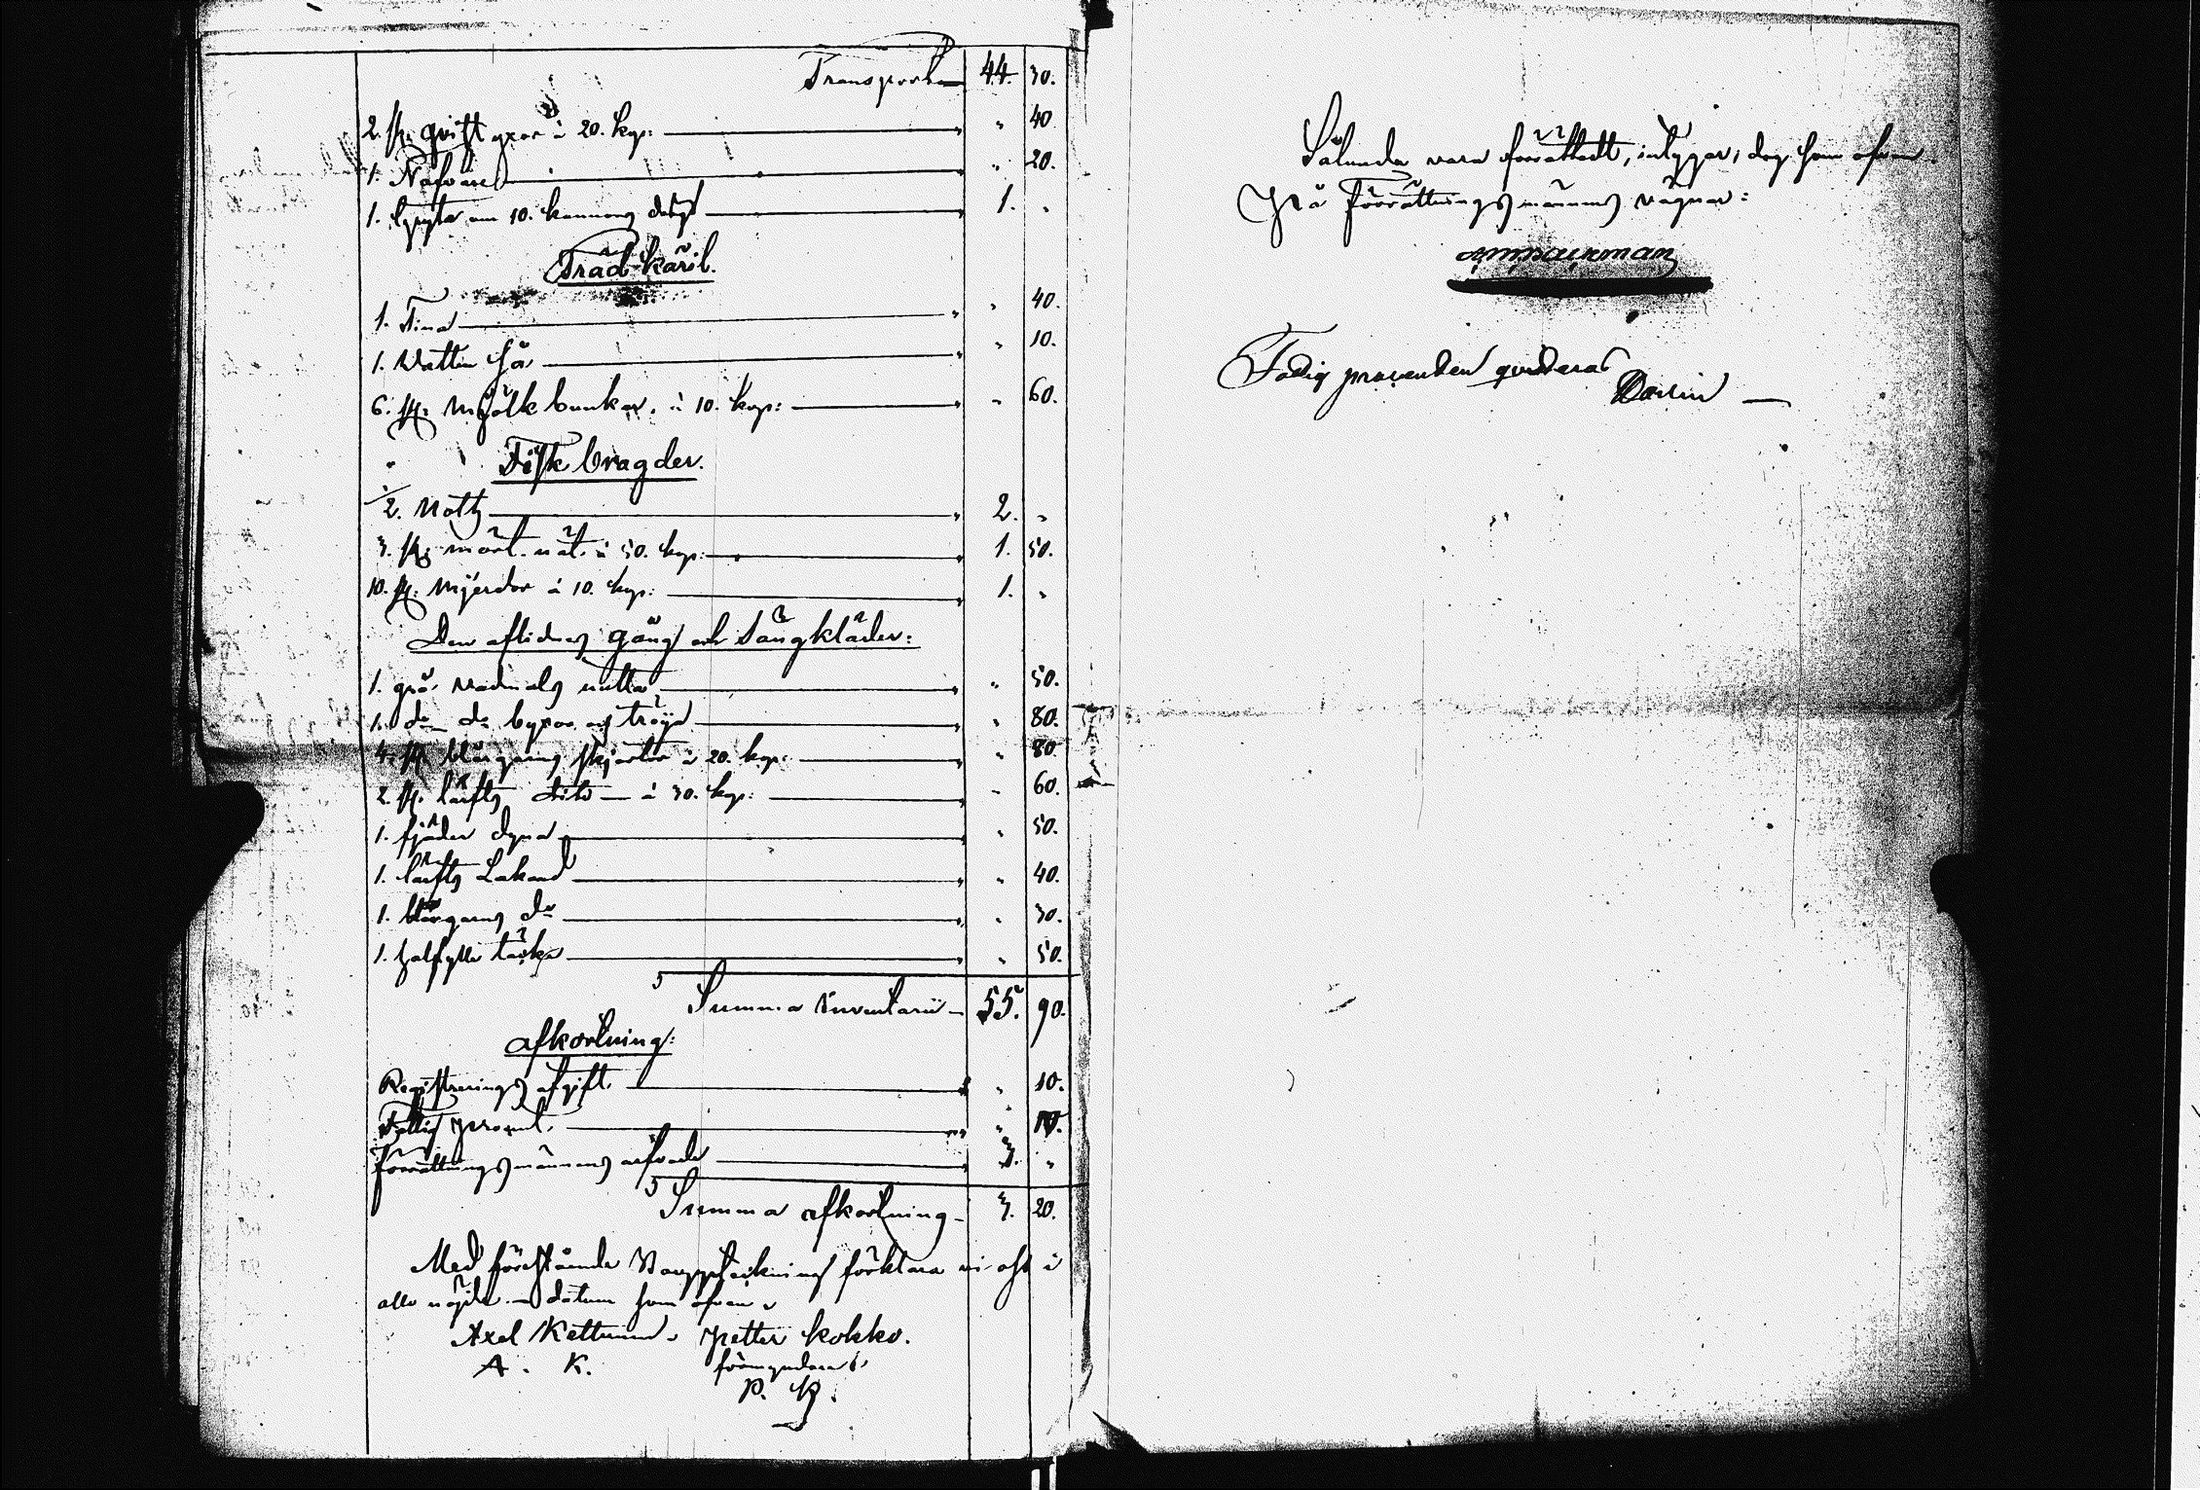 Transport 44. 30.
2. st. qvist yxor à 20. kop: " 40
1. Nafvare " 20.
1. gryta om 10. kannors dito 1. "
Träd-käril.
1. Tina " 40.
1. Vatten så " 10.
6. st. Mjölk bunkar. à 10. kop: " 60.
Fisk bragder.
1/2. Nott 2. "
3. st. mört. nät. à 50. kop: 1. 50.
10. st. Mjerdor à 10. kop: 1. "
Den aflidnes gång och Sängkläder:
1. grå vadmals " 50.
1. do do byxor och tröja " 80.
4. st. blårgarns skjortor à 20. kop: " 80
2. st. lärfts dito à 30. kop: " 60.
1. fjäder dyna " 50.
1. lärfts Lakan " 40.
1. blårgarns do " 30.
1. täcke " 50.
Summa Inventarii 55. 90.
afkortning:
Registrerings afgift. " 10.
Fattig procent. " 10.
Förrättningsmännens arfvode 3. "
Summa afkortning 3. 20.
Med förestående Bouppteckning förklara vi oss i
allo nöjde. datum som ofvan.
Axel Kettunen. Petter Kokko.
A. K. förmyndare.
P. K.
Sålunda vara förrättadt, intygar, dag som ofvan.
På Förrättningsmännens vägnar:
Fattig procenten qvitteras